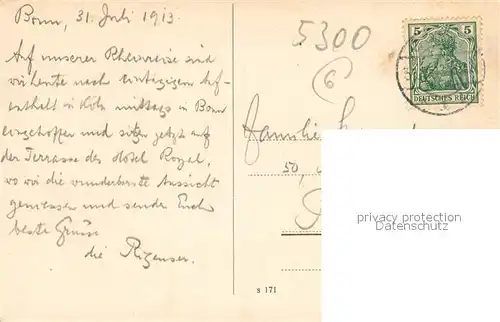 Bonn, 31. Juli 1913.
Auf unserer Rheinreise sind
wir heute nach eintägigem Auf-
enthalt in Köln mittags in Bonn
eingetroffen und sitzen jetzt auf
der Terrasse des Hotel Royal,
wo wir die wunderbarste Aussicht
geniessen und senden Euch
beste Grüsse
die Rigenser.
5300
6
5 5
DEUTSCHES REICH
Familie
50,
privacy protection
Datenschutz
s 171